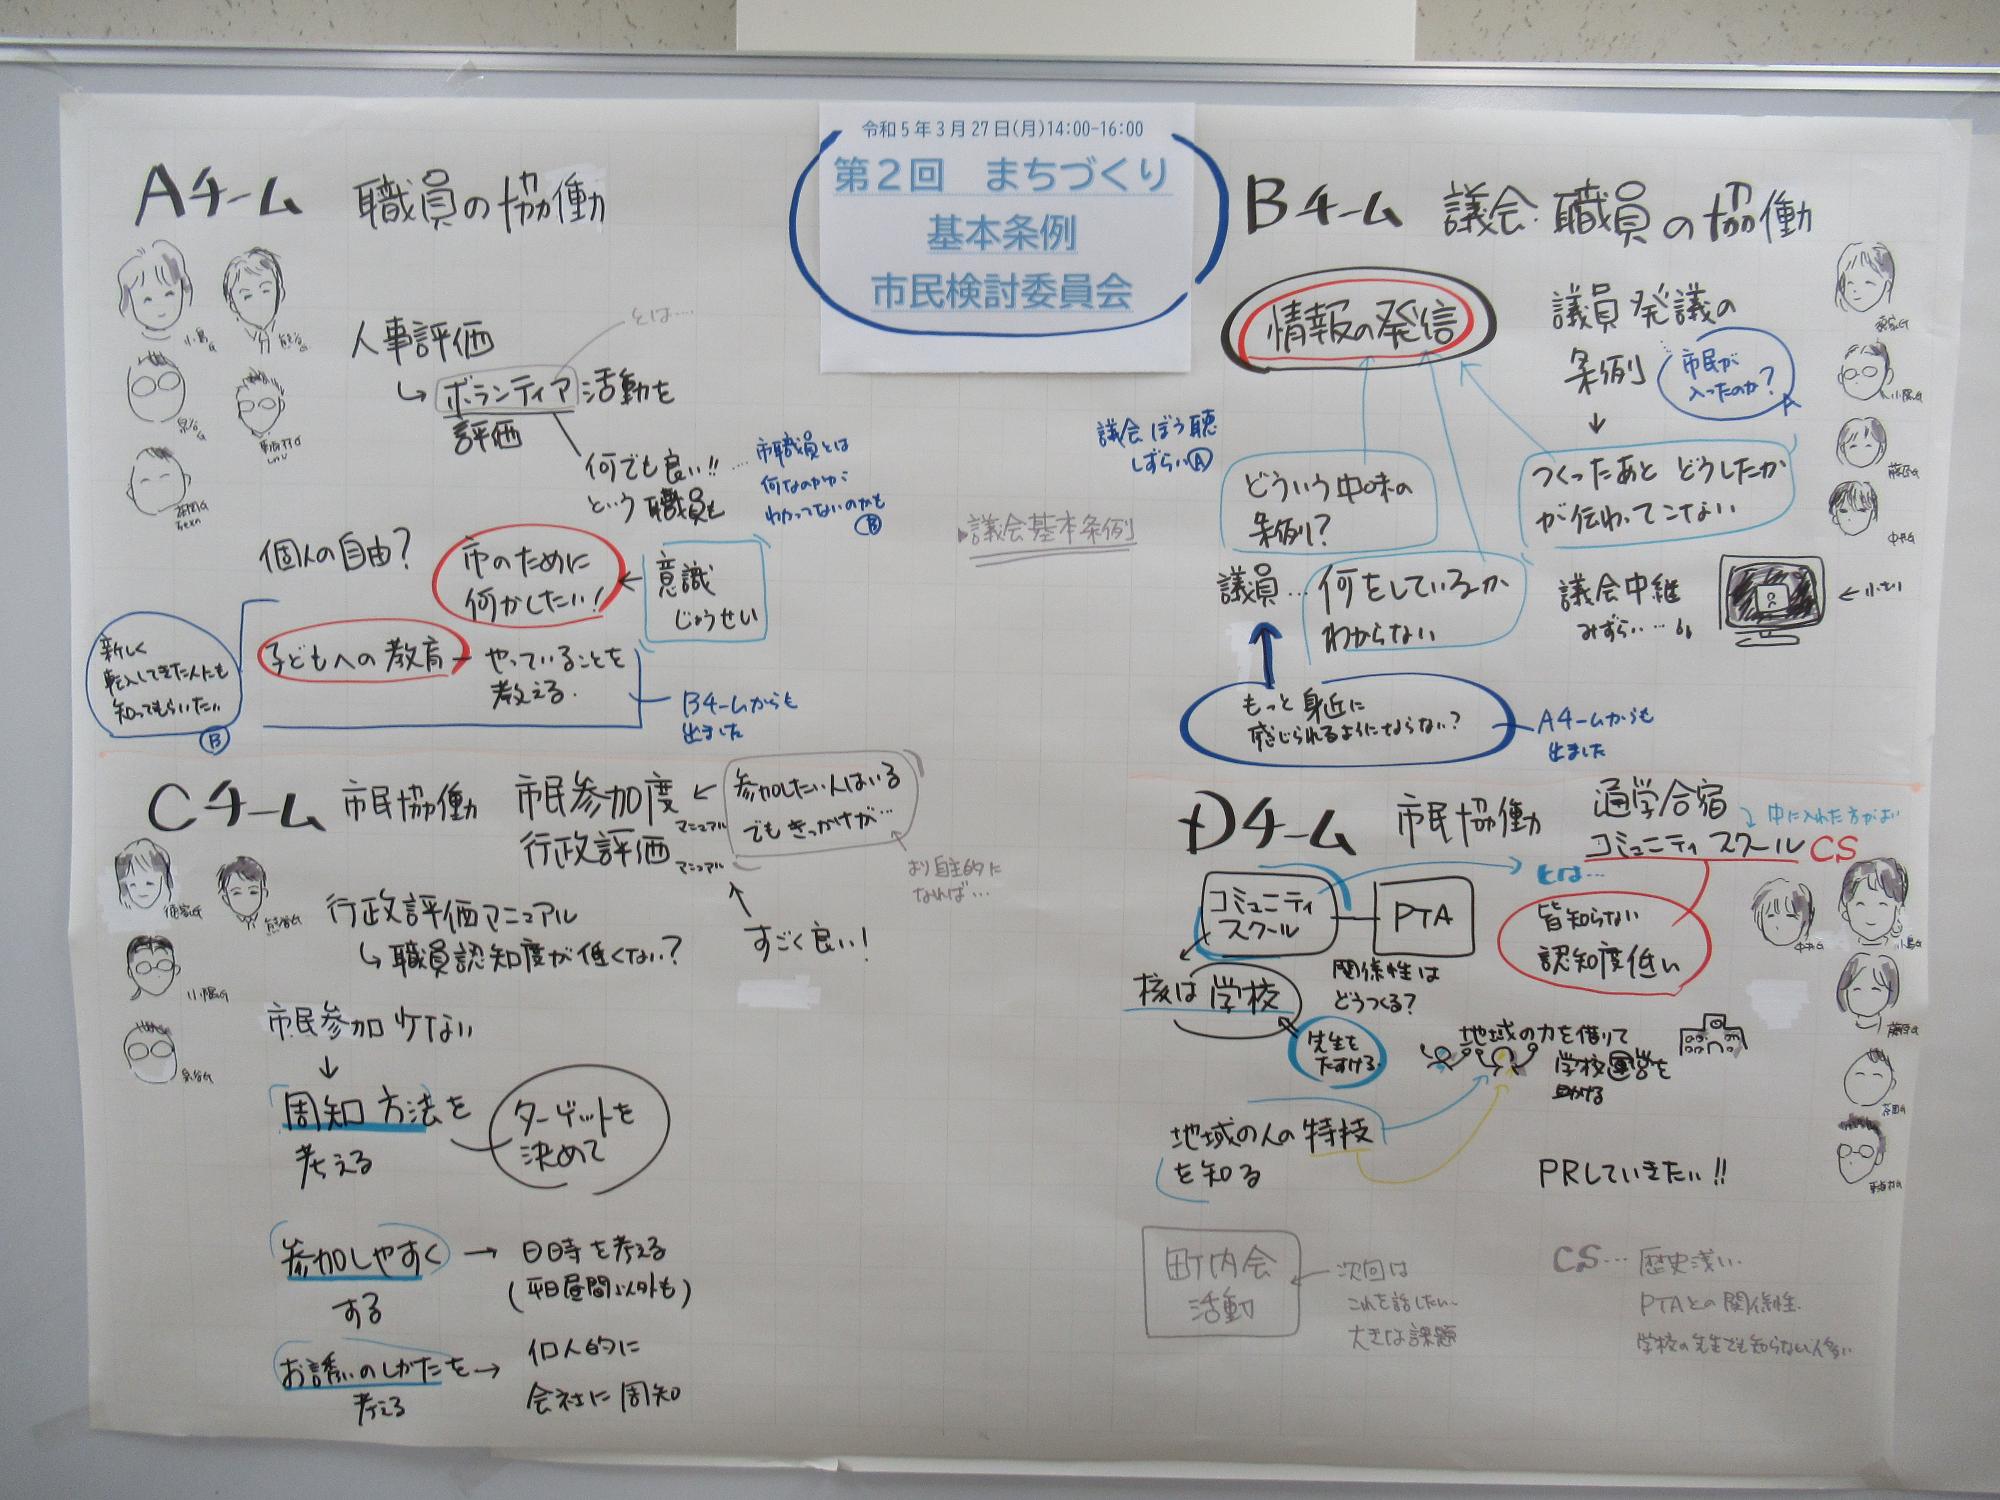 令和5年3月27日(月)14:00-16:00
第2回 まちづくり
基本条例
市民検討委員会
Aチーム 職員の協働
人事評価
とは…
↳ボランティア活動を
評価
何でも良い!!…
という職員も
市職員とは
何なのかが
わかってないのかも
Ⓑ
個人の自由?
市のために
何かしたい!
←
意識
じょうせい
子どもへの教育
やっていることを
教える.
新しく
転入してきた人にも
知ってもらいたい
Ⓑ
Bチームからも
出ました
▸議会基本条例
Bチーム 議会・職員の協働
情報の発信
議員発議の
条例
市民が
入ったのか?
A
↓
議会ぼう聴
しずらいⒶ
どういう中味の
条例?
つくったあと どうしたか
が伝わってこない
議員…
何をしているか
わからない
議会中継
みずらい…
←小さい
もっと身近に
感じられるようにならない?
Aチームからも
出ました
Cチーム 市民協働
市民参加度
マニュアル
行政評価
マニュアル
←
参加したい人はいる
でもきっかけが…
より自主的に
なれば…
すごく良い!
行政評価マニュアル
↳職員認知度が低くない?
市民参加少ない
↓
周知方法を
考える
ターゲットを
決めて
参加しやすく
する
→
日時を考える
(平日昼間以外も)
お誘いのしかたを
考える
→
個人的に
会社に周知
Dチーム 市民協働
通学合宿
コミュニティスクール CS
中に入れた方がよい
とは…
コミュニティ
スクール
PTA
関係性は
どうつくる?
皆知らない
認知度低い
核は学校
先生を
たすける
地域の力を借りて
学校運営を
助ける
地域の人の特技
を知る
PRしていきたい!!
町内会
活動
次回は
これを話したい
大きな課題
CS… 歴史浅い
PTAとの関係性
学校の先生でも知らない人多い